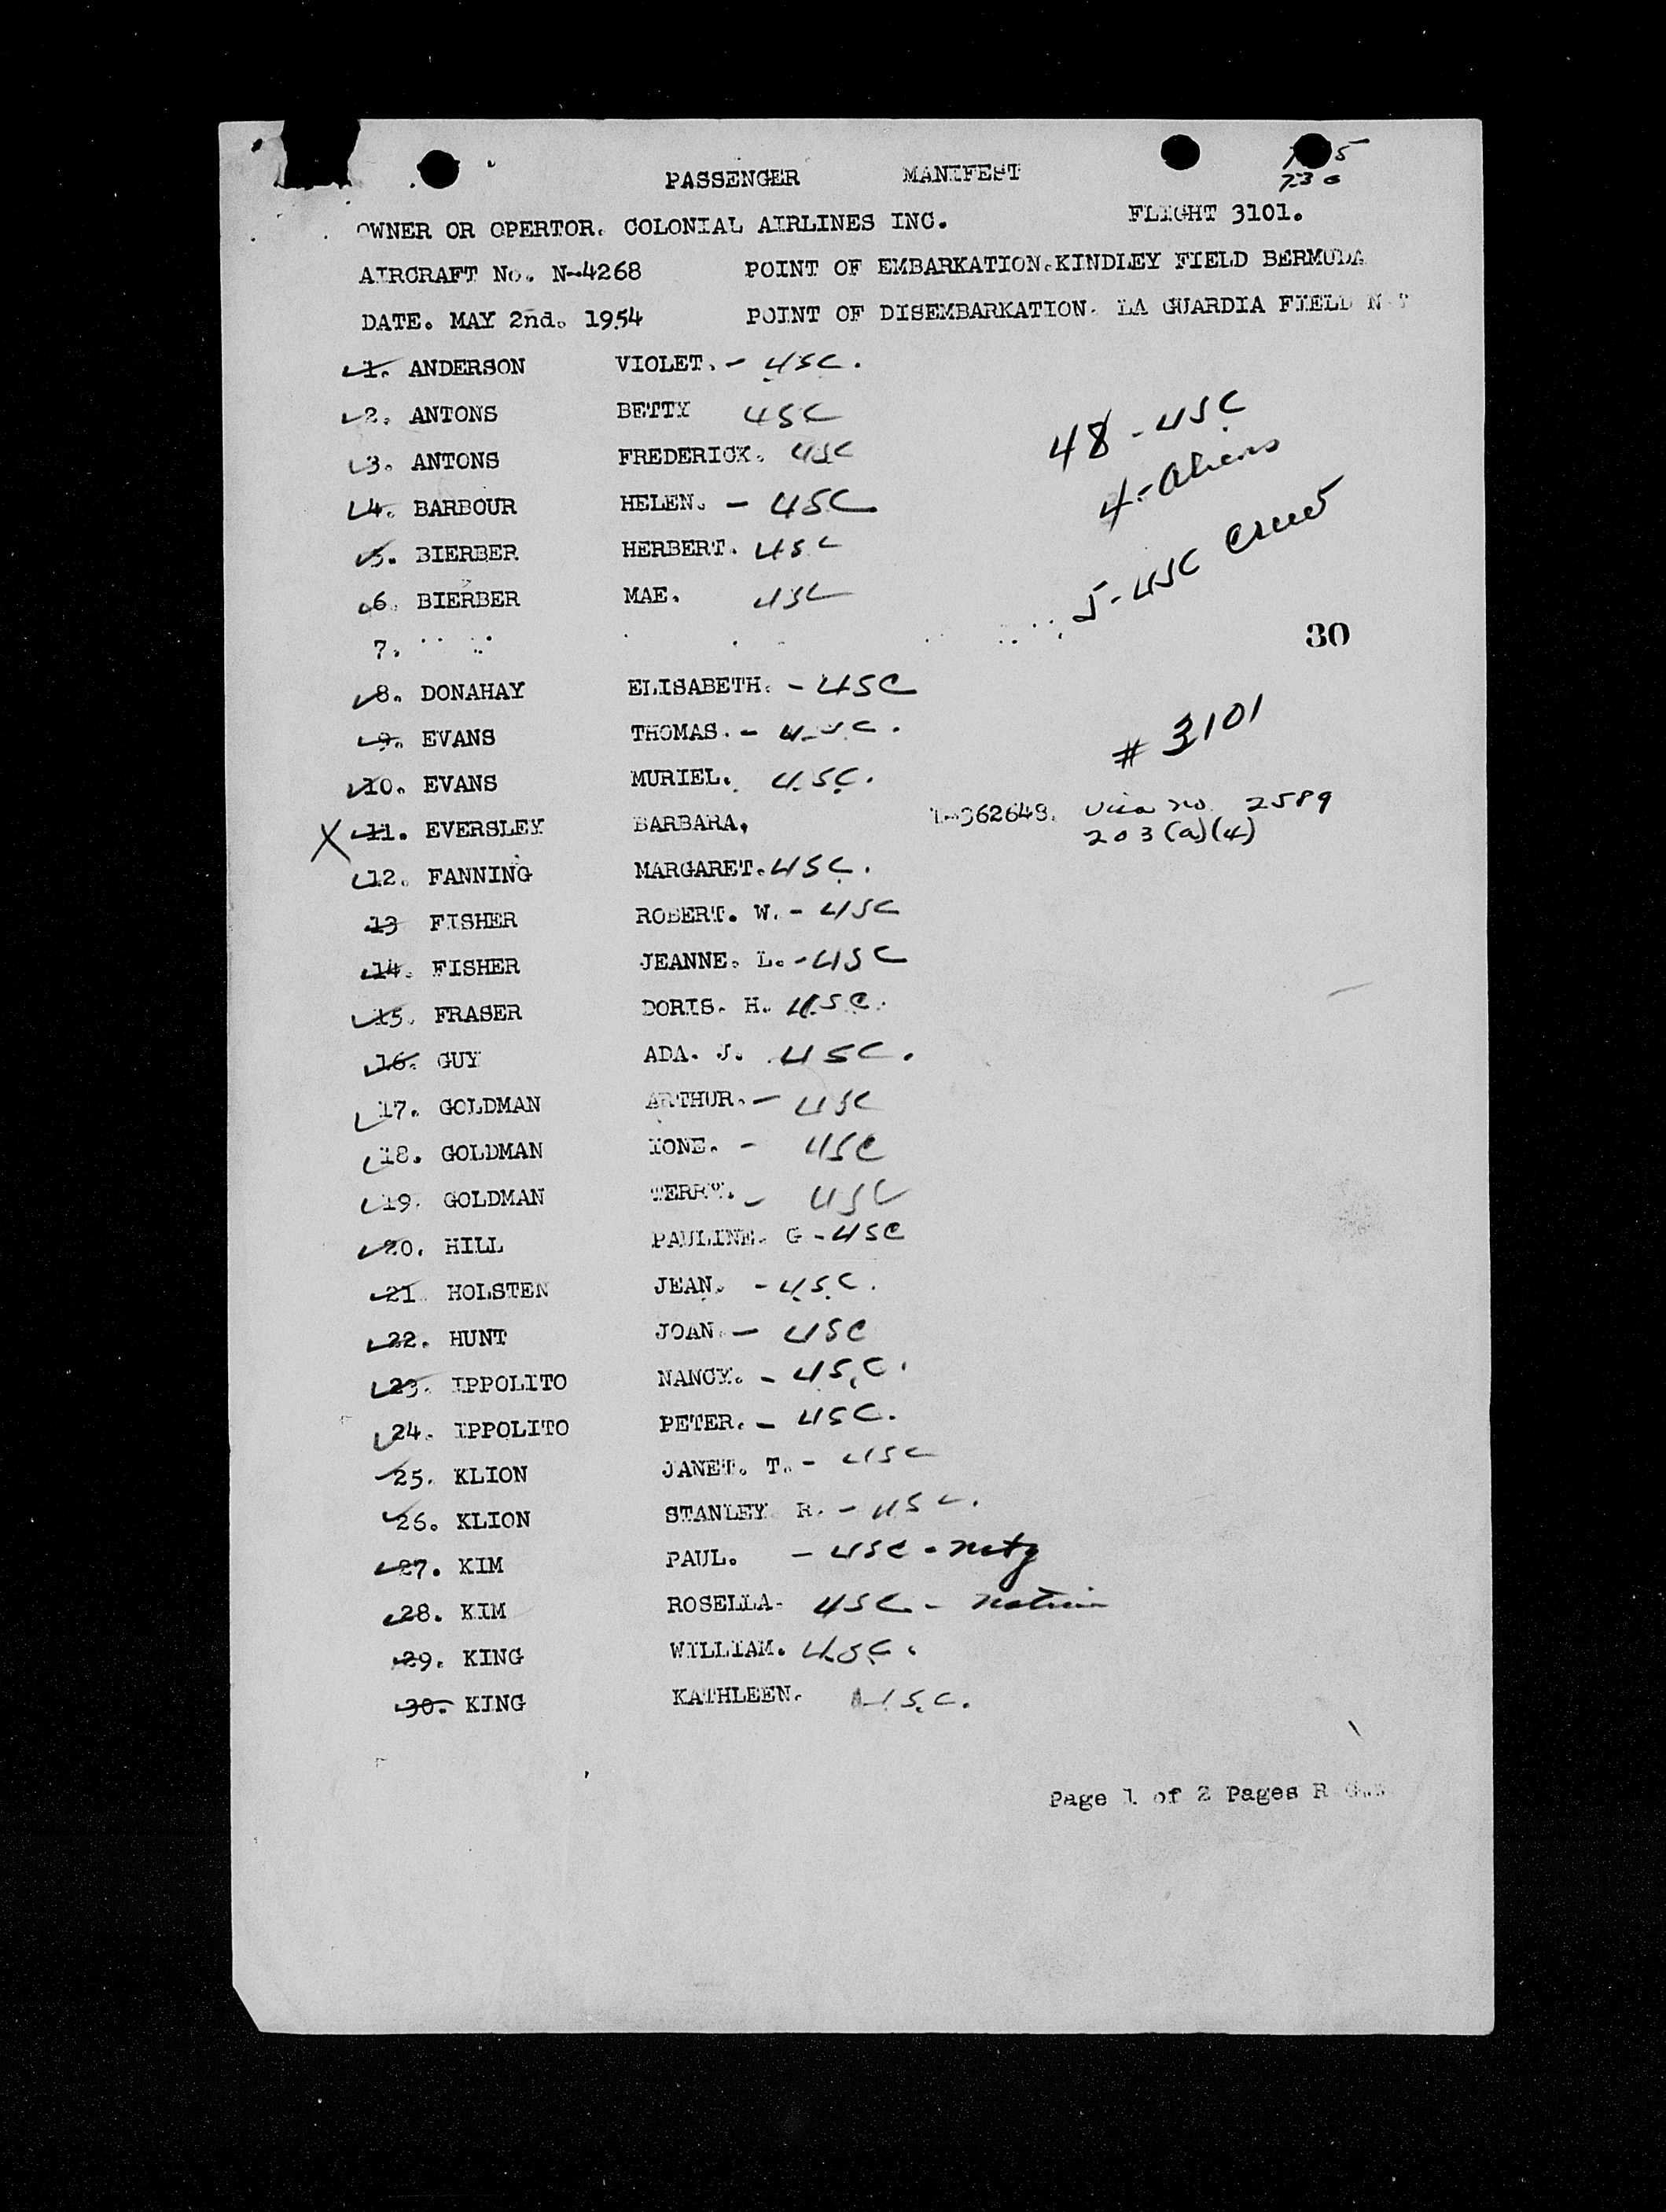 PASSENGER MANIFEST
730
OWNER OR OPERTOR. COLONIAL AIRLINES INC. FLIGHT 3101.
AIRCRAFT No. N-4268 POINT OF EMBARKATION. KINDLEY FIELD BERMUDA
DATE. MAY 2nd. 1954 POINT OF DISEMBARKATION. LA GUARDIA FIELD N
1. ANDERSON VIOLET. - USC.
2. ANTONS BETTY USC
48 - USC
3. ANTONS FREDERICK. USC
4 - Aliens
4. BARBOUR HELEN. - USC
5. BIERBER HERBERT. USC
5 - USC Crew
6. BIERBER MAE. USC
7.
30
8. DONAHAY ELISABETH. - USC
9. EVANS THOMAS. - USC.
# 3101
10. EVANS MURIEL. USC.
X 11. EVERSLEY BARBARA. 362648. Visa no. 2589
203(a)(4)
12. FANNING MARGARET. USC.
13 FISHER ROBERT. W. - USC
14. FISHER JEANNE. L. - USC
15. FRASER DORIS. H. USC.
16. GUY ADA. J. USC.
17. GOLDMAN ARTHUR. - USC
18. GOLDMAN IONE. - USC
19. GOLDMAN TERRY. - USC
20. HILL PAULINE. G - USC
21 HOLSTEN JEAN. - USC.
22. HUNT JOAN. - USC
23. IPPOLITO NANCY. - USC.
24. IPPOLITO PETER. - USC.
25. KLION JANET. T. - USC
26. KLION STANLEY R. - USC.
27. KIM PAUL. - USC - Natz
28. KIM ROSELLA. USC - Native
29. KING WILLIAM. USC.
30. KING KATHLEEN. USC.
Page 1 of 2 Pages R